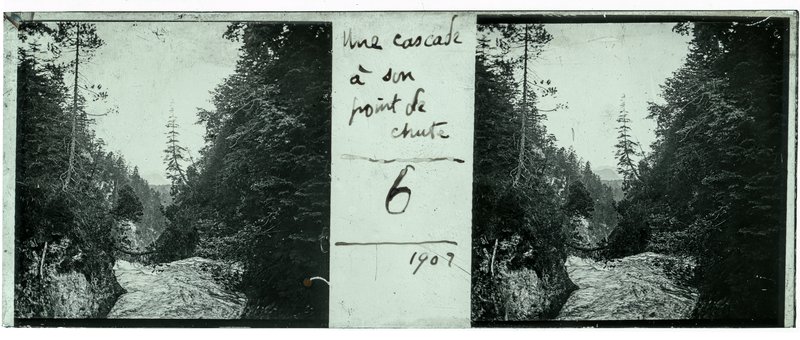 Une cascade
à son
point de
chute
6
1907